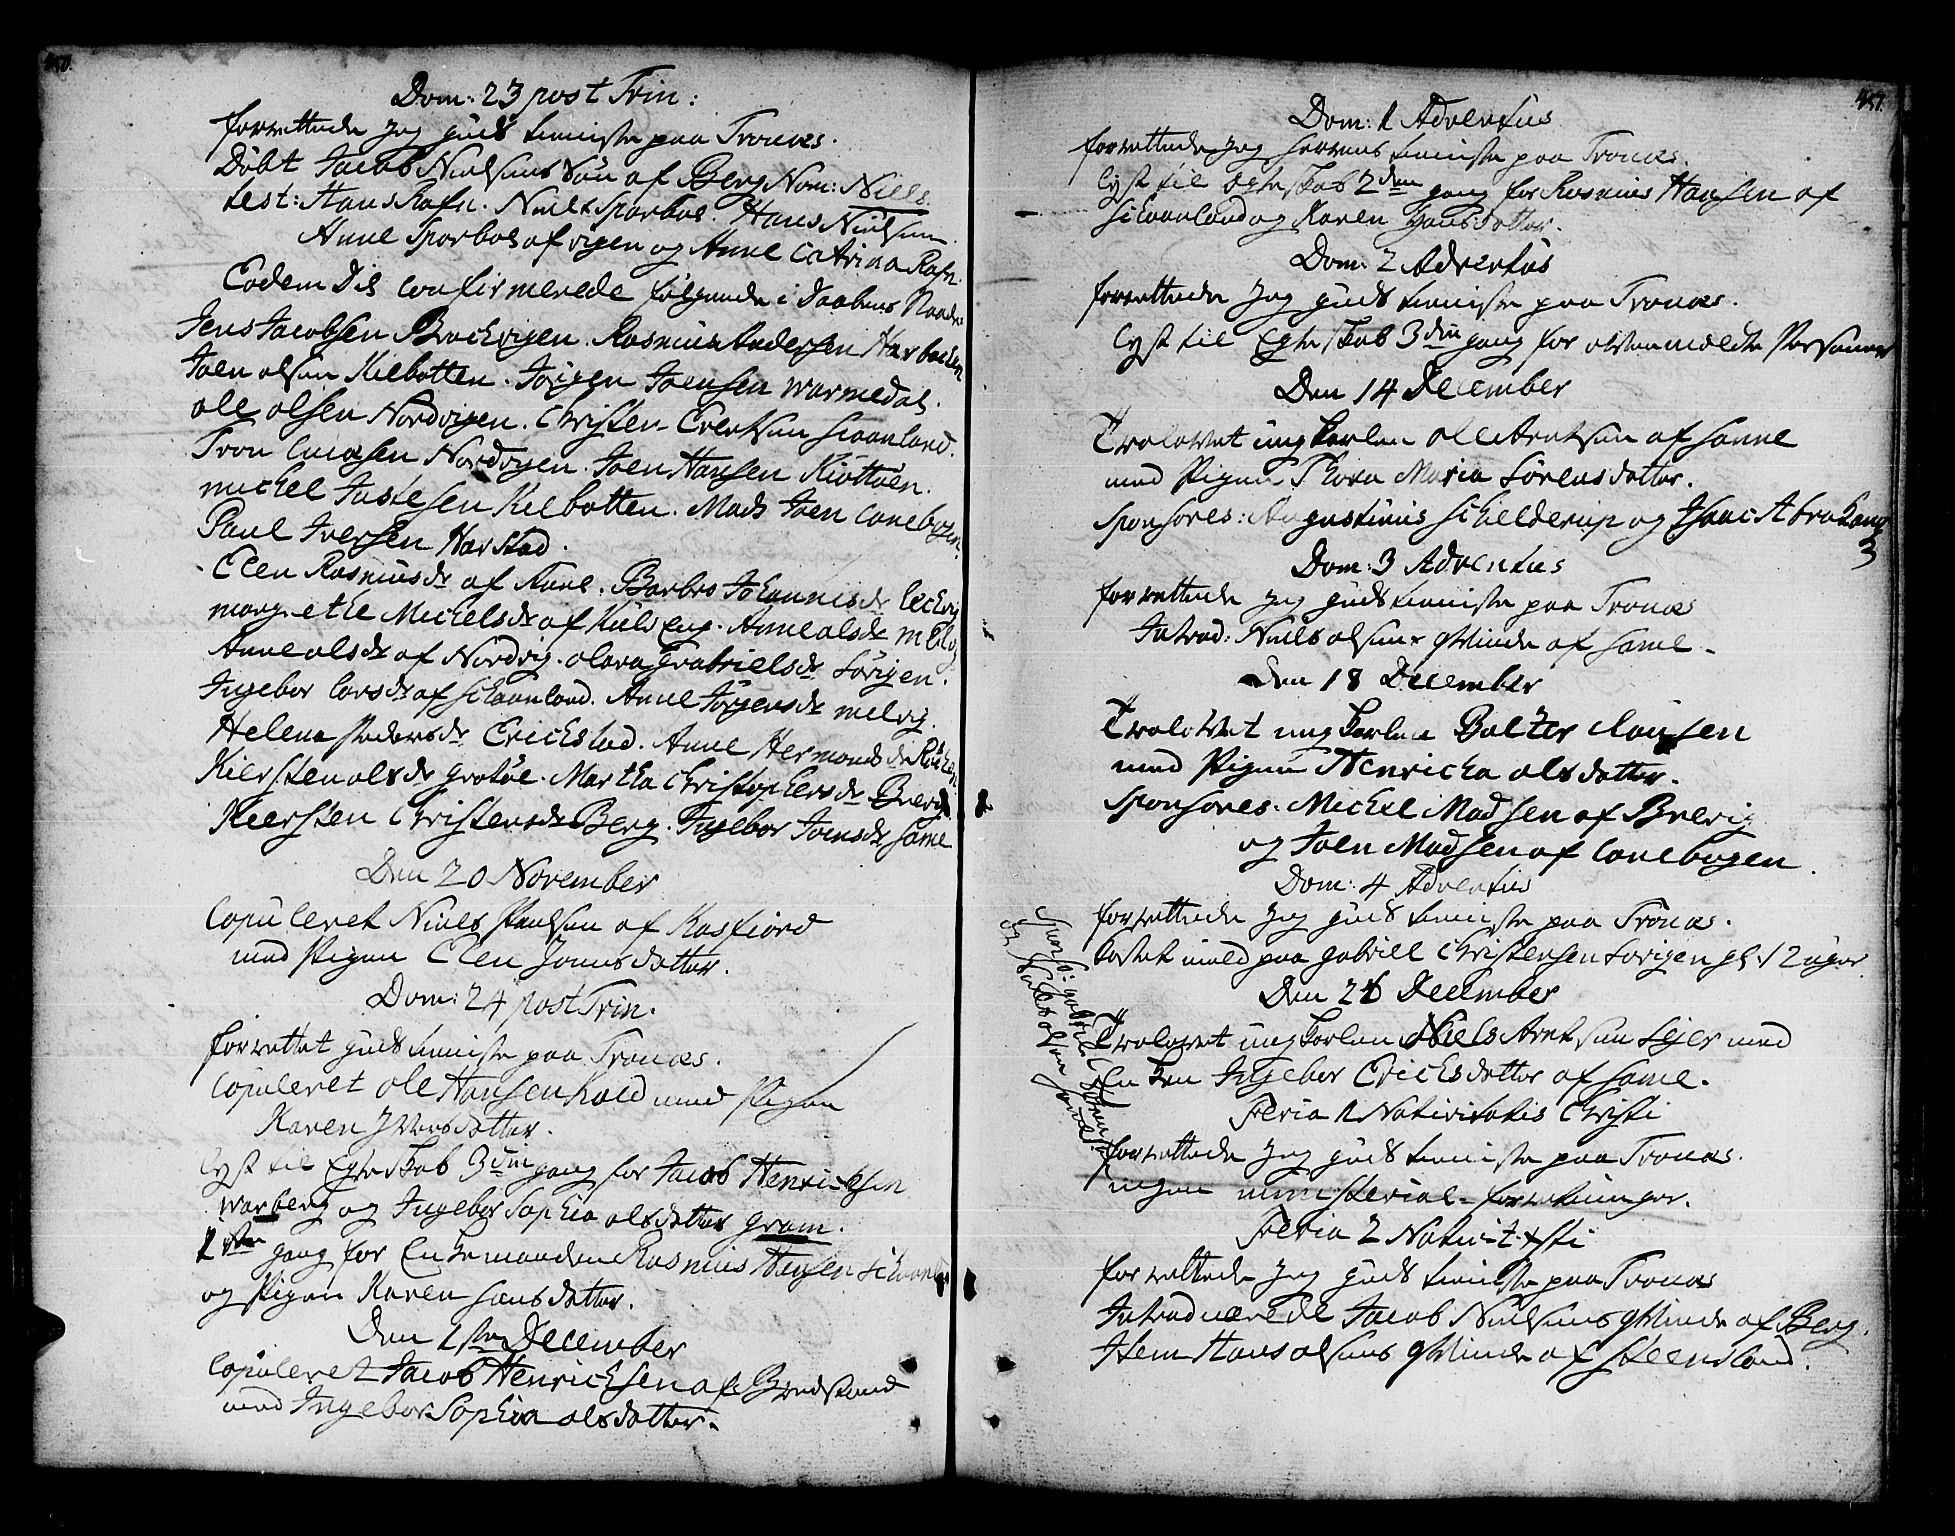 Dom: 23 post Trin:
forrettede Jeg Guds tieniste paa Tronæs.
Döbt Jacob Nielsens Sön af Berg Nom: Niels.
test: Hans Rafn. Niels Sparboe. Hans Nielsen
Anne Sparboe af vigen og Anne Catrina Rafn.
Eodem Die confirmerede følgende i Daabens Naade
Jens Jacobsen Brockvigen. Rasmus Andersen
Joen olsen Kilbotten. Jörgen Joensen Warmedal.
ole olsen Nordvigen. Christen Evertsen schaanland.
Tron Nordvigen. Joen Hansen Kiöttöen.
michel Jostesen Kilbotten. Mads Joen
Paul Iversen Harstad.
Elen Rasmusdr af Barbro Johannisdr
margrethe Michelsdr af Kuls Eng. Anne olsdr melvig
Anne olsdr af Nordvig. Gabrielsdr Sörvigen.
Ingebor larsdr af schaanland. Anne Jörgensdr melvig.
Helena Pedersdr Erickstad. Anne Hermansdr
Kiersten olsdr grotöe. Martha Christophersdr Brevig
Kiersten Christensdr Berg. Ingebor Joensdr same
Den 20 November
Copuleret Niels Paulsen af Kasfiord
med Pigen Elen Jonsdatter.
Dom: 24 post Trin.
forrettet guds tieniste paa Tronæs.
Copuleret ole Hansen Kold med Pigen
Karen Iversdatter.
lyst til Egteskab 3die gang for Jacob Henrichsen
Warberg og Ingebor Sophia olsdatter gram.
1ste gang for Enkemanden Rasmus Hansen
og Pigen Karen Hansdatter.
Den 1ste December
Copuleret Jacob Henrichsen af Bredstrand
med Ingebor Sophia olsdatter.
457.
Dom: 1 Adventus
forrettede Jeg herrens tieniste paa Tronæs.
lyst til Egteskab 2den gang for Rasmus Hansen af
schaanland og Karen Hansdatter.
Dom: 2 Adventus
forrettede Jeg guds tieniste paa Tronæs.
lyst til Egteskab 3die gang for ovenmeldte Personer
Den 14 December
Trolovet ungkarlen ole Arntsen af sanne
med Pigen Thora Maria Sörensdatter.
Sponsores: Augustinus Schelderup og Isaac Abraham
Dom: 3 Adventus
forrettede Jeg guds tieniste paa Tronæs
Introd: Niels olsens qvinde af same.
Den 18 December
Trolovet ungkarlen Balzer Clausen
med Pigen Henricha olsdatter.
Sponsores. Michel Madsen af Brevig
og Joen Madsen af lanebogen.
Dom: 4 Adventus
forrettede Jeg guds tieniste paa Tronæs.
Kastet muld paa gabriel Christensen Sörvigen gl: 12 uger
Den 26 December
Trolovet ungkarlen Niels Arntsen med
Enken Ingebor Ericksdatter af same.
Sponso: gabriel
og olsen
Feria 1 Nativitatis Christi
forrettede Jeg guds tieniste paa Tronæs.
ingen ministerial-forretninger.
Feria 2 Nativit: Xsti
forrettede Jeg guds tieniste paa Tronæs
Introducerede Jacob Nielsens qvinde af Berg.
Item Hans olsens qvinde af steensland.